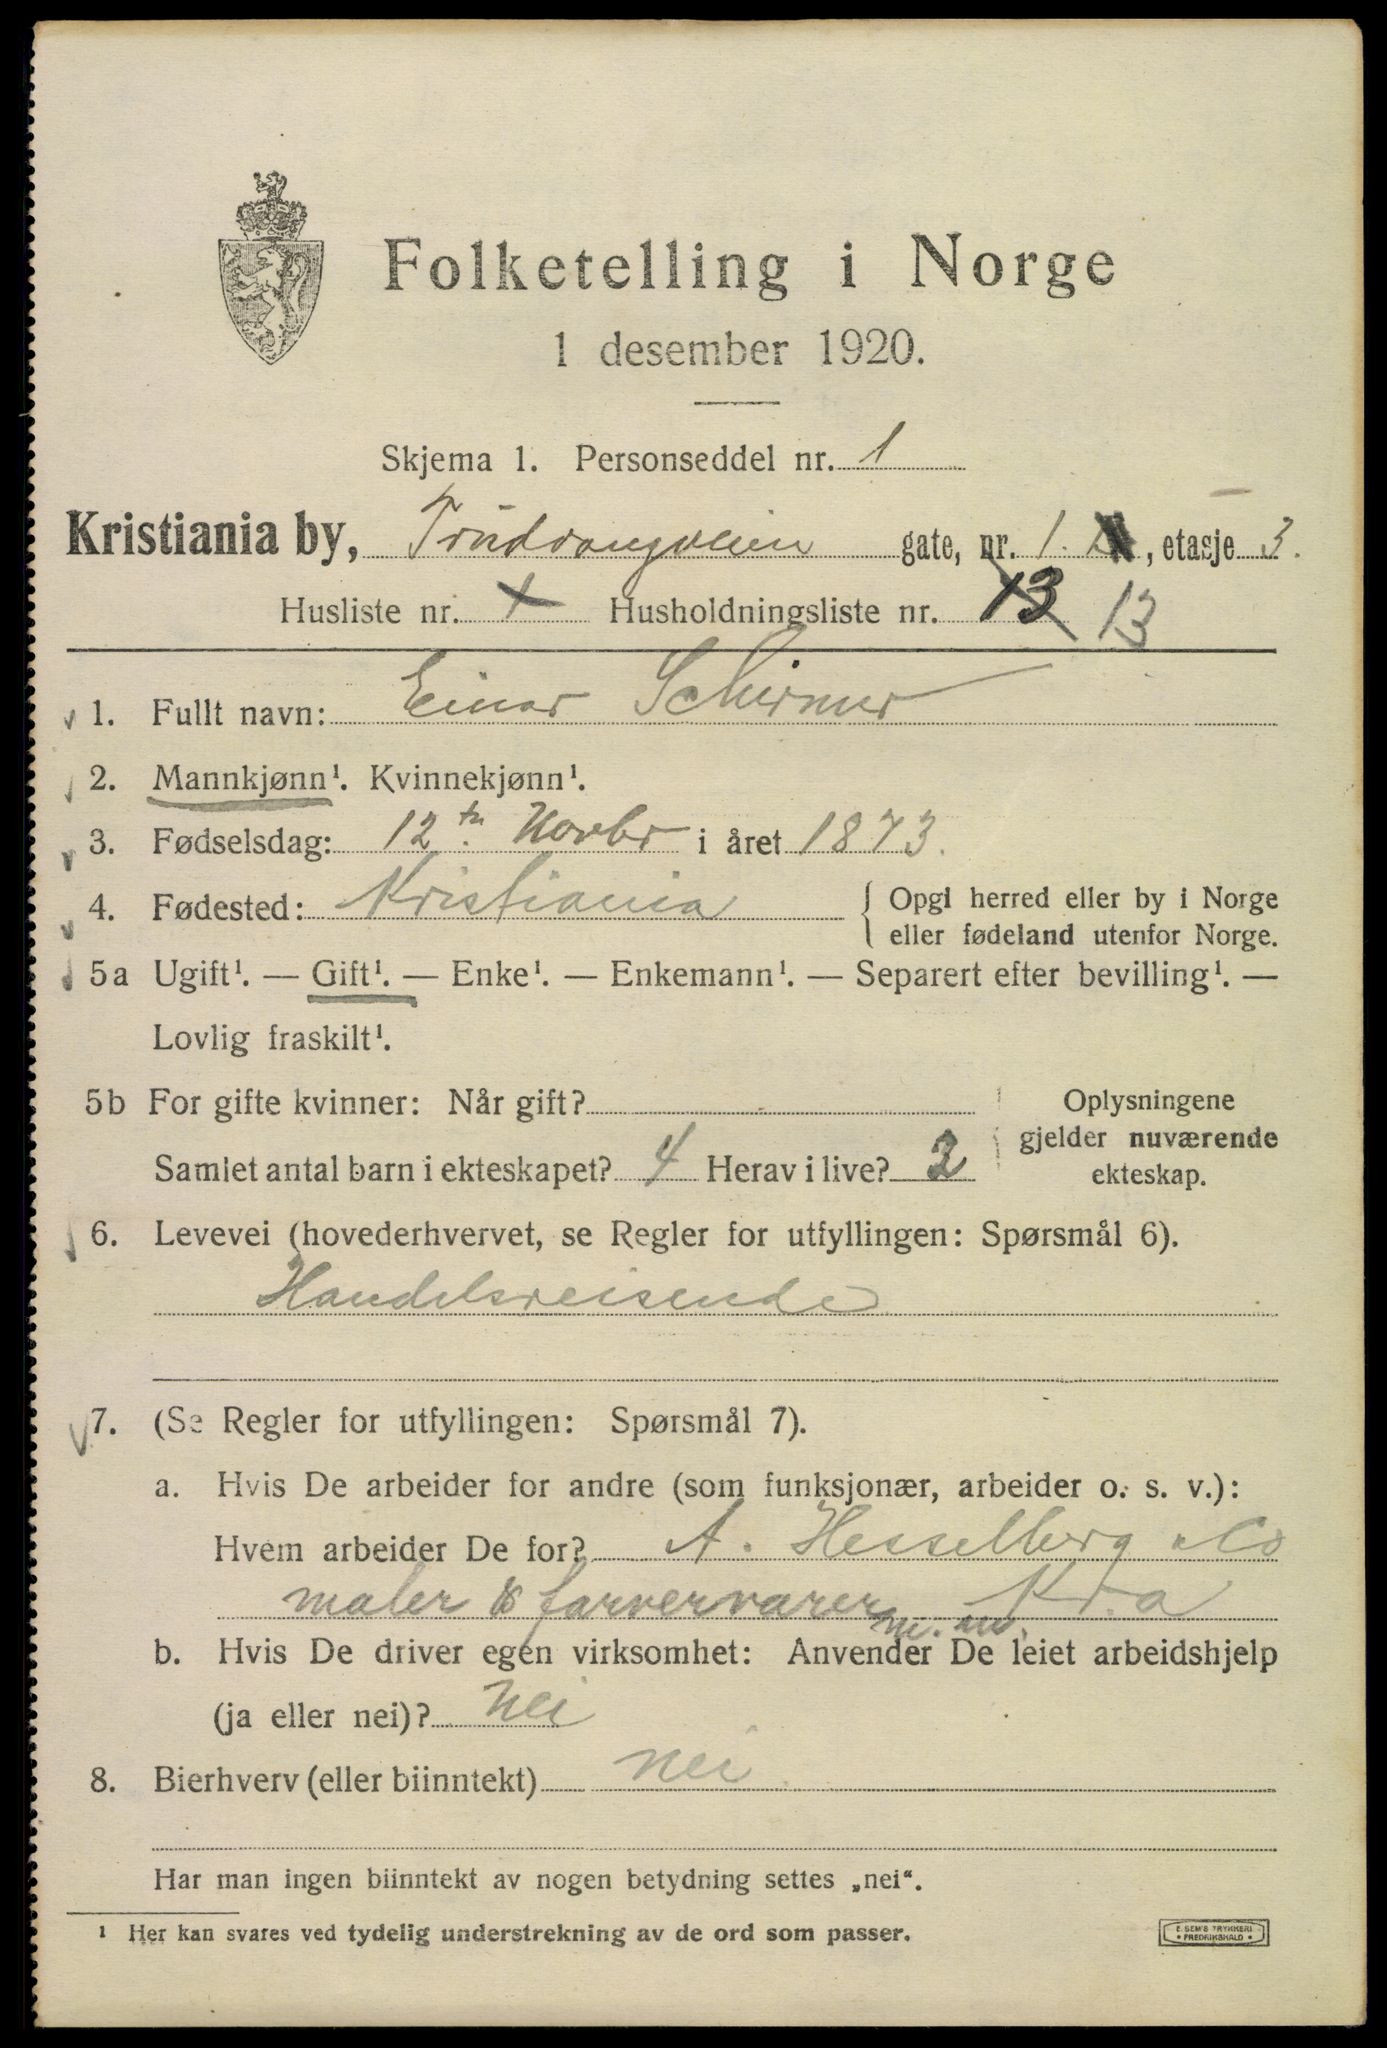 Folketelling i Norge
1 desember 1920.
Skjema 1. Personseddel nr. 1
Kristiania by, Trudvangveien gate, nr. 1. , etasje 3.
Husliste nr. 1 Husholdningsliste nr. 13 13
1. Fullt navn: Einar Schirmer
2. Mannkjønn¹. Kvinnekjønn¹.
3. Fødselsdag: 12te. Novbr i året 1873.
4. Fødested: Kristiania { Opgi herred eller by i Norge
eller fødeland utenfor Norge.
5a Ugift¹. — Gift¹. — Enke¹. — Enkemann¹. — Separert efter bevilling¹. —
Lovlig fraskilt¹.
5b For gifte kvinner: Når gift? Oplysningene
gjelder nuværende
Samlet antal barn i ekteskapet? 4 Herav i live? ekteskap.
6. Levevei (hovederhvervet, se Regler for utfyllingen: Spørsmål 6).
Handelsreisende
7. (Se Regler for utfyllingen: Spørsmål 7).
a. Hvis De arbeider for andre (som funksjonær, arbeider o. s. v.):
Hvem arbeider De for? A. Hesselberg & Co
maler & farvervarer m. m. Kr.a
b. Hvis De driver egen virksomhet: Anvender De leiet arbeidshjelp
(ja eller nei)? Nei
8. Bierhverv (eller biinntekt) nei
Har man ingen biinntekt av nogen betydning settes „nei“.
¹ Her kan svares ved tydelig understrekning av de ord som passer.
E. SEM'S TRYKKERI
• FREDRIKSHALD •